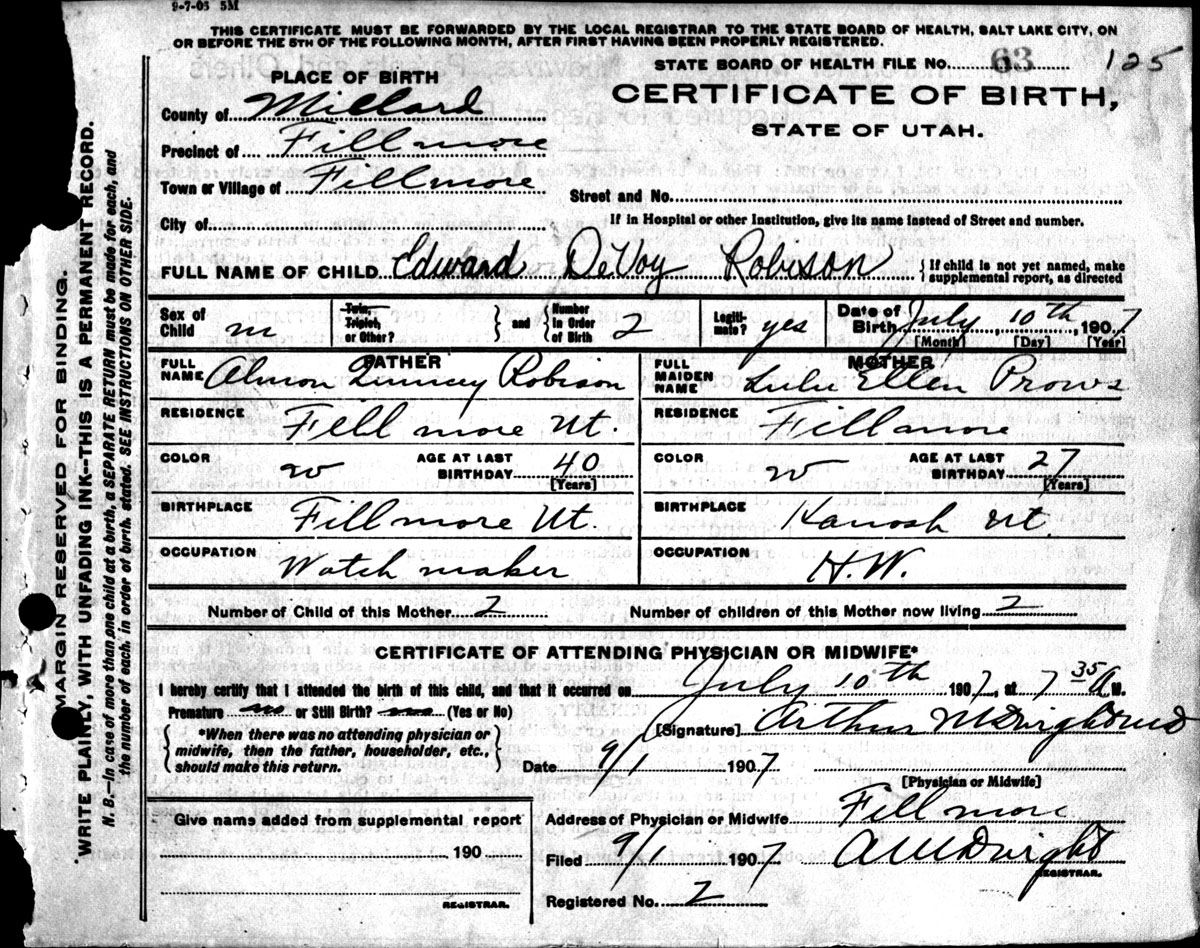 9-7-05 5M
THIS CERTIFICATE MUST BE FORWARDED BY THE LOCAL REGISTRAR TO THE STATE BOARD OF HEALTH, SALT LAKE CITY, ON
OR BEFORE THE 5TH OF THE FOLLOWING MONTH, AFTER FIRST HAVING BEEN PROPERLY REGISTERED.
STATE BOARD OF HEALTH FILE No. 63 125
PLACE OF BIRTH
CERTIFICATE OF BIRTH,
STATE OF UTAH.
County of Millard
Precinct of Fillmore
Town or Village of Fillmore
Street and No.
If in Hospital or other Institution, give its name instead of Street and number.
City of
FULL NAME OF CHILD Edward DeVoy Robison { If child is not yet named, make
supplemental report, as directed
Sex of Child m
Twin, Triplet, or Other? } and { Number in Order of Birth 2
Legiti-mate? yes
Date of Birth July 10th, 1907
[Month] [Day] [Year]
FATHER
FULL NAME Almon Quincy Robison
RESIDENCE Fillmore Ut.
COLOR w AGE AT LAST BIRTHDAY 40
[Years]
BIRTHPLACE Fillmore Ut.
OCCUPATION Watch maker
MOTHER
FULL MAIDEN NAME Lulu Ellen Prows
RESIDENCE Fillmore
COLOR w AGE AT LAST BIRTHDAY 27
[Years]
BIRTHPLACE Kanosh Ut.
OCCUPATION H.W.
Number of Child of this Mother 2 Number of children of this Mother now living 2
CERTIFICATE OF ATTENDING PHYSICIAN OR MIDWIFE*
I hereby certify that I attended the birth of this child, and that it occurred on July 10th 1907, at 7 35 A M.
Premature no or Still Birth? no (Yes or No)
[Signature] Arthur
{ *When there was no attending physician or
midwife, then the father, householder, etc.,
should make this return. }
Date 9/1 1907
[Physician or Midwife]
Address of Physician or Midwife Fillmore
Filed 9/1 1907
REGISTRAR.
Registered No. 2
Give name added from supplemental report
190
REGISTRAR.
MARGIN RESERVED FOR BINDING.
WRITE PLAINLY, WITH UNFADING INK--THIS IS A PERMANENT RECORD.
N. B.--In case of more than one child at a birth, a SEPARATE RETURN must be made for each, and
the number of each, in order of birth, stated. SEE INSTRUCTIONS ON OTHER SIDE.